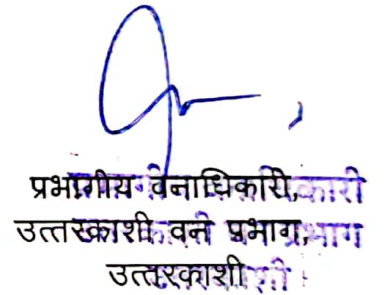 प्रभागीय वनाधिकारी,
उत्तरकाशी वन प्रभाग,
उत्तरकाशी